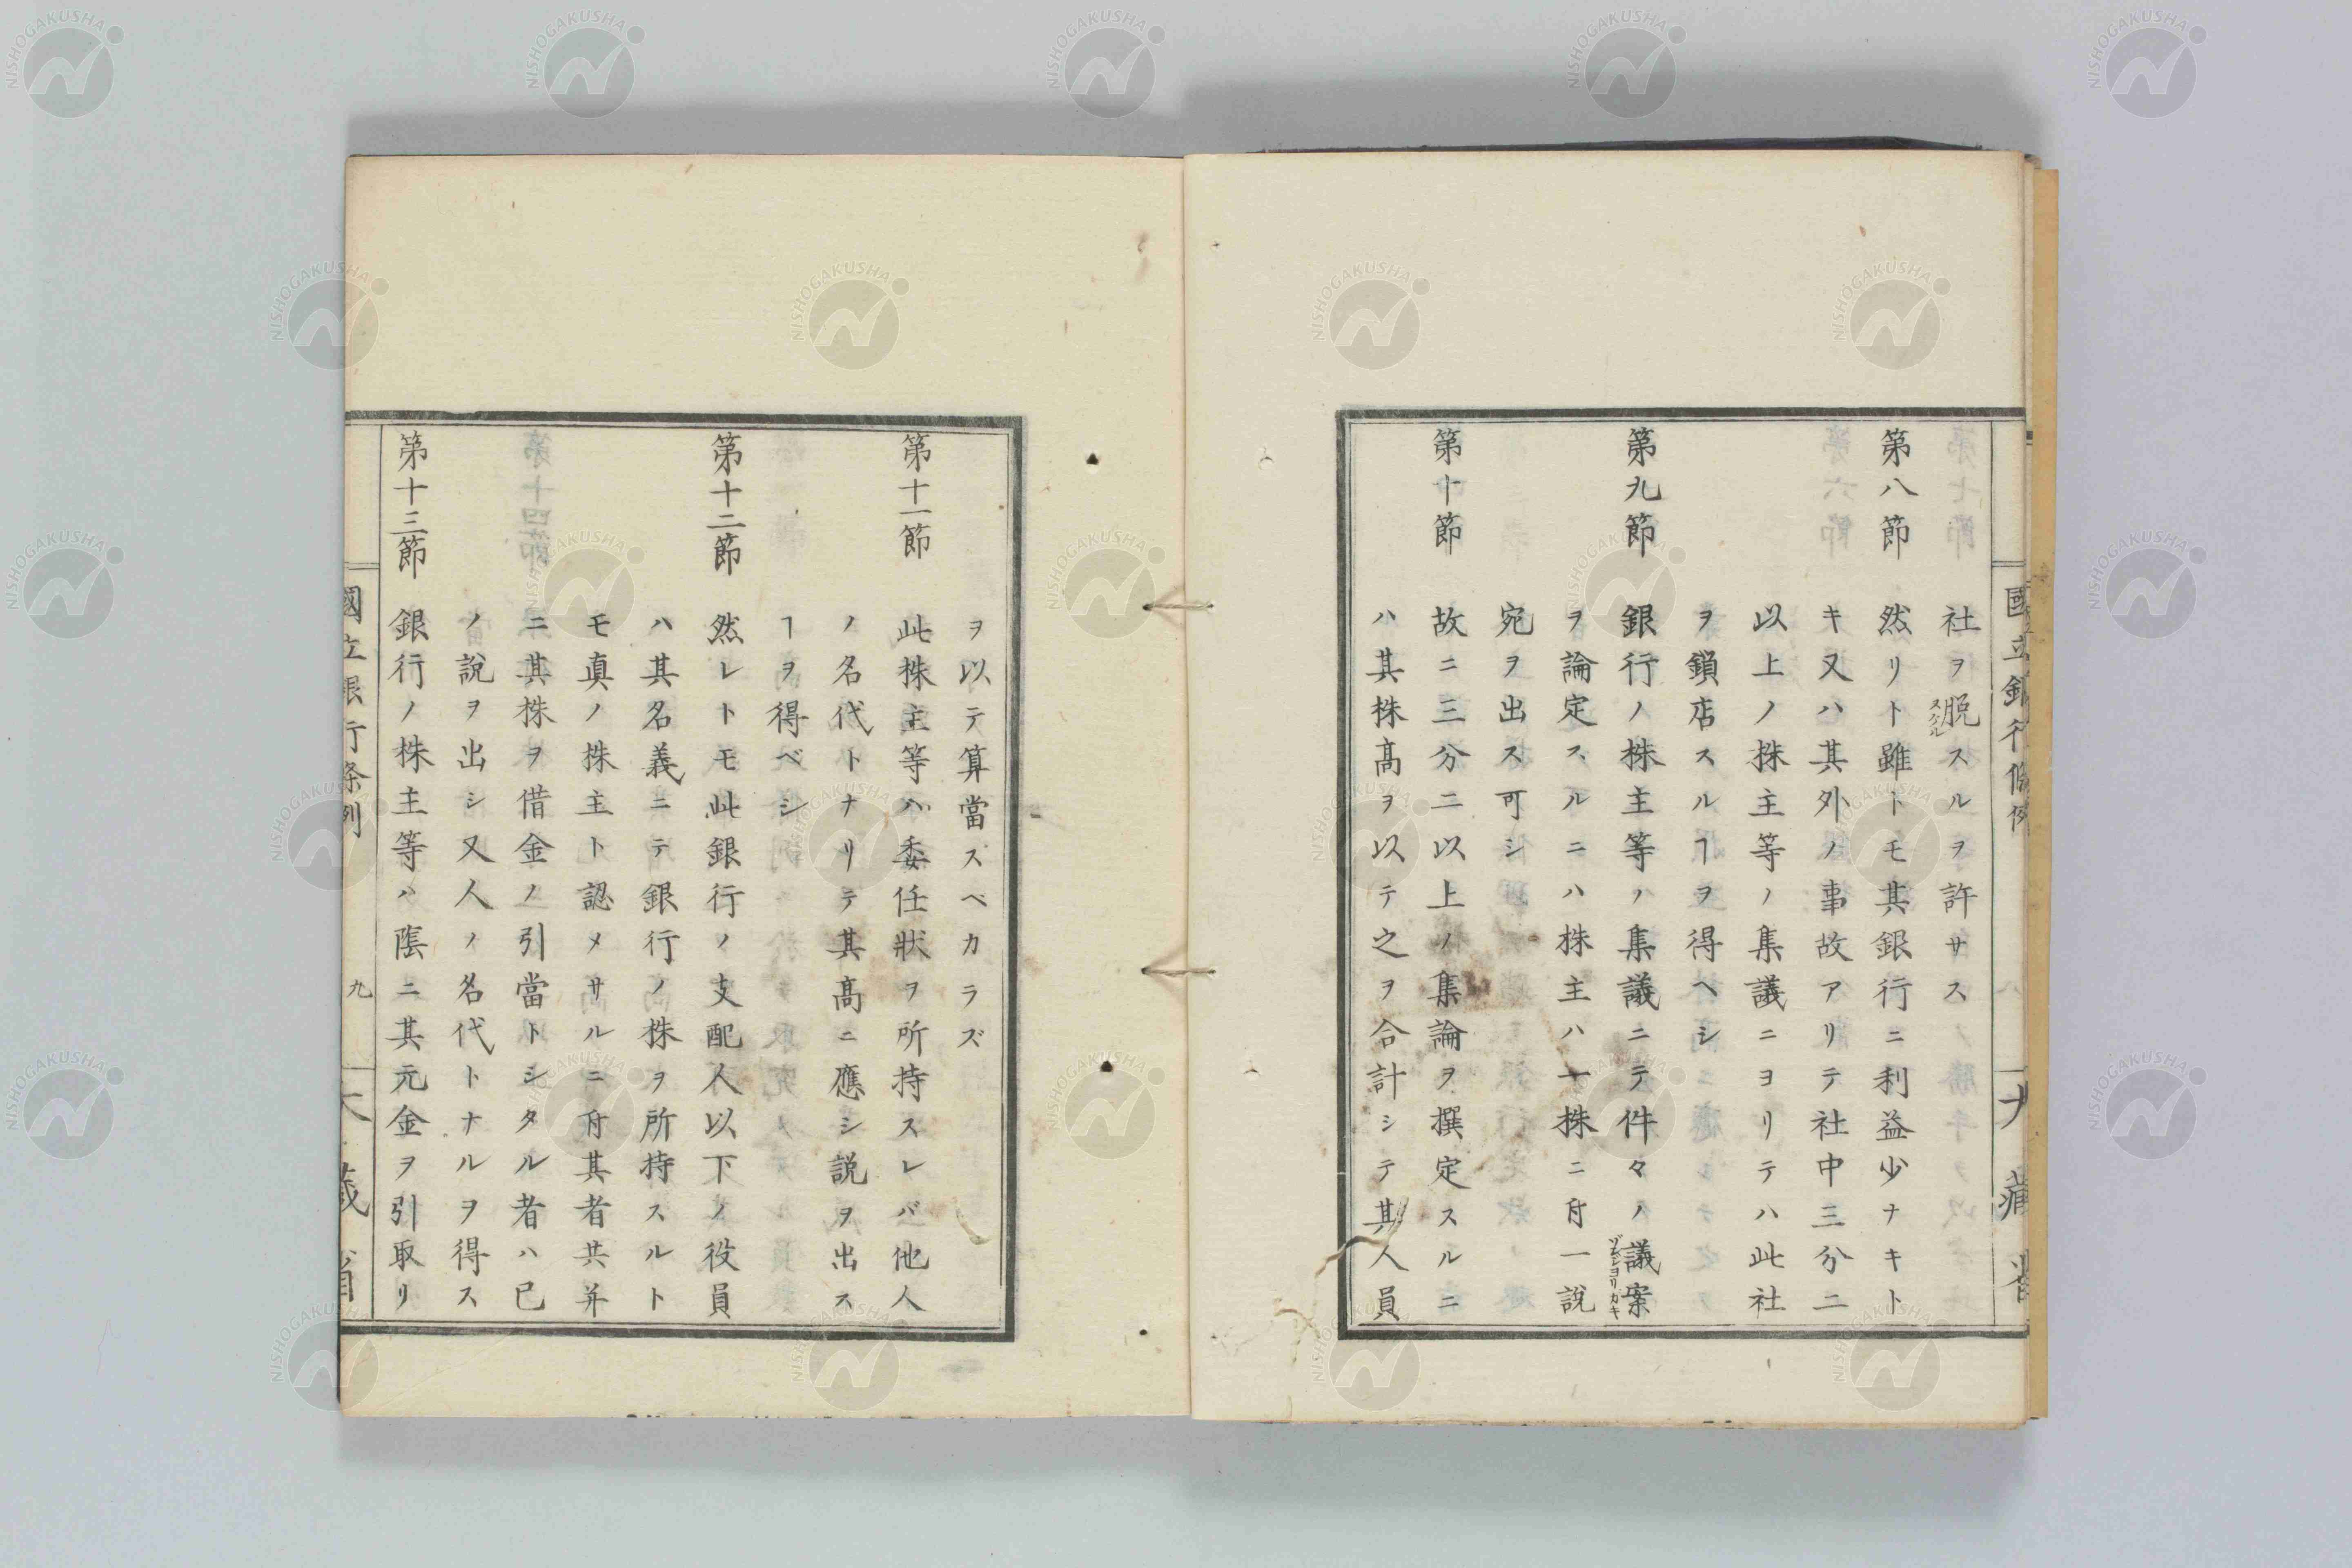 社ヲ脱スルヲ許サス
スケル
第八節 然リト雖トモ其銀行ニ利益少ナキト
キ又ハ其外ノ事故アリテ社中三分二
以上ノ株主等ノ集議ニヨリテハ此社
ヲ鎖店スルヿヲ得ヘシ
第九節 銀行ノ株主等ノ集議ニテ件々ノ議案
ヲ論定スルニハ株主ハ一株ニ付一説
宛ヲ出ス可シ
第十節 故ニ三分二以上ノ集論ヲ撰定スルニ
ハ其株高ヲ以テ之ヲ合計シテ其人員
國立銀行條例
ヲ以テ算當スベカラズ
第十一節 此株主等ハ委任狀ヲ所持スレバ他人
ノ名代トナリテ其高ニ應シ説ヲ出ス
ヿヲ得ベシ
第十二節 然レトモ此銀行ノ支配人以下ノ役員
ハ其名義ニテ銀行ノ株ヲ所持スルト
モ真ノ株主ト認メサルニ付其者共并
ニ其株ヲ借金ノ引當トシタル者ハ已
ノ説ヲ出シ又人ノ名代トナルヲ得ス
第十三節 銀行ノ株主等ハ陰ニ其元金ヲ引取リ
國立銀行條例 九 大藏省
NISHOGAKUSHA